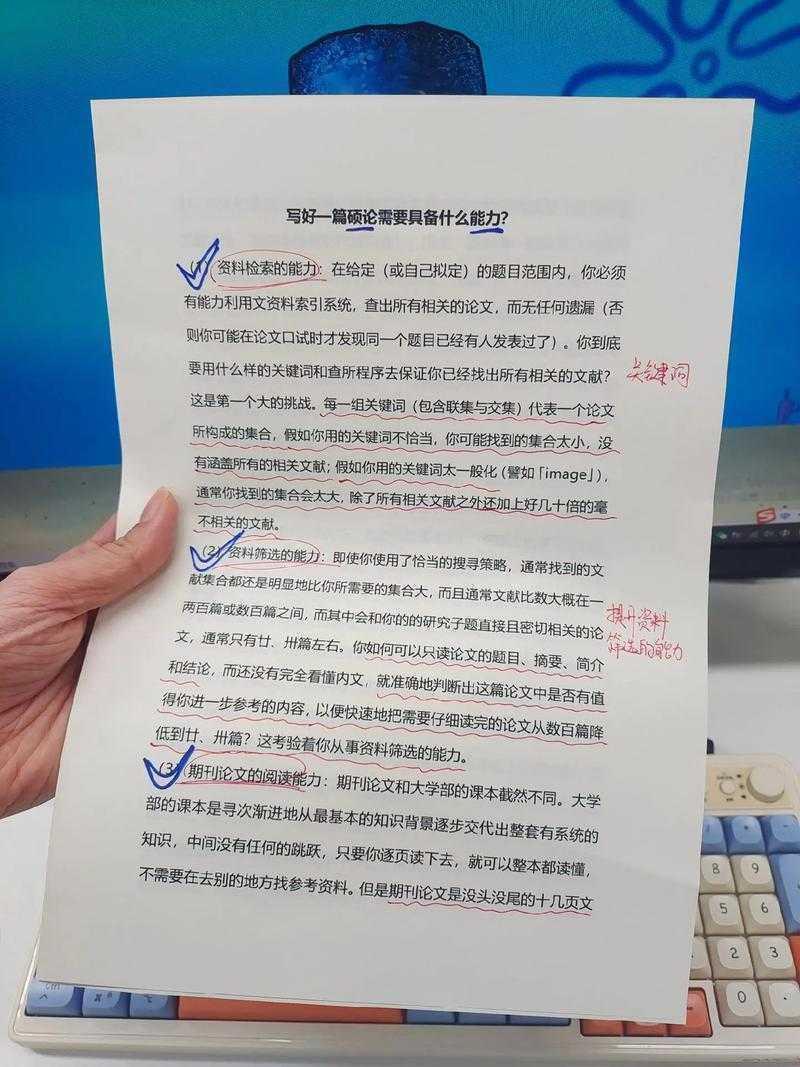 写好一篇硕论需要具备什么能力?
(1)资料检索的能力：在给定（或自己拟定）的题目范围内，你必须
有能力利用文资料索引系统，查出所有相关的论文，而无任何遗漏（否
则你可能在论文口试时才发现同一个题目已经有人发表过了）。你到底
要用什么样的关键词和查所程序去保证你已经找出所有相关的文献?
关键词
这是第一个大的挑战。每一组关键词（包含联集与交集）代表一个论文
所构成的集合，假如你用的关键词不恰当，你可能找到的集合太小，没
有涵盖所有的相关文献；假如你用的关键词太一般化（譬如「image」），
通常你找到的集合会太大，除了所有相关文献之外还加上好几十倍的毫
不相关的文献。
(2)资料筛选的能力：即使你使用了恰当的搜寻策略，通常找到的文
献集合都还是明显地比你所需要的集合大，而且通常文献比数大概在一
两百篇或数百篇之间，而其中会和你的的研究子题直接且密切相关的论
提升资料
筛选的能力
文，通常只有廿、卅篇左右。你如何可以只读论文的题目、摘要、简介
和结论，而还没有完全看懂内文，就准确地判断出这篇论文中是否有值
得你进一步参考的内容，以便快速地把需要仔细读完的论文从数百篇降
低到廿、卅篇？这考验着你从事资料筛选的能力。
(3)期刊论文的阅读能力：期刊论文和大学部的课本截然不同。大学
部的课本是寻次渐进地从最基本的知识背景逐步交代出整套有系统的
知识，中间没有任何的跳跃，只要你逐页读下去，就可以整本都读懂，
不需要在去别的地方找参考资料。但是期刊论文是没头没尾的十几页文
8 9
5 6
2 3
0